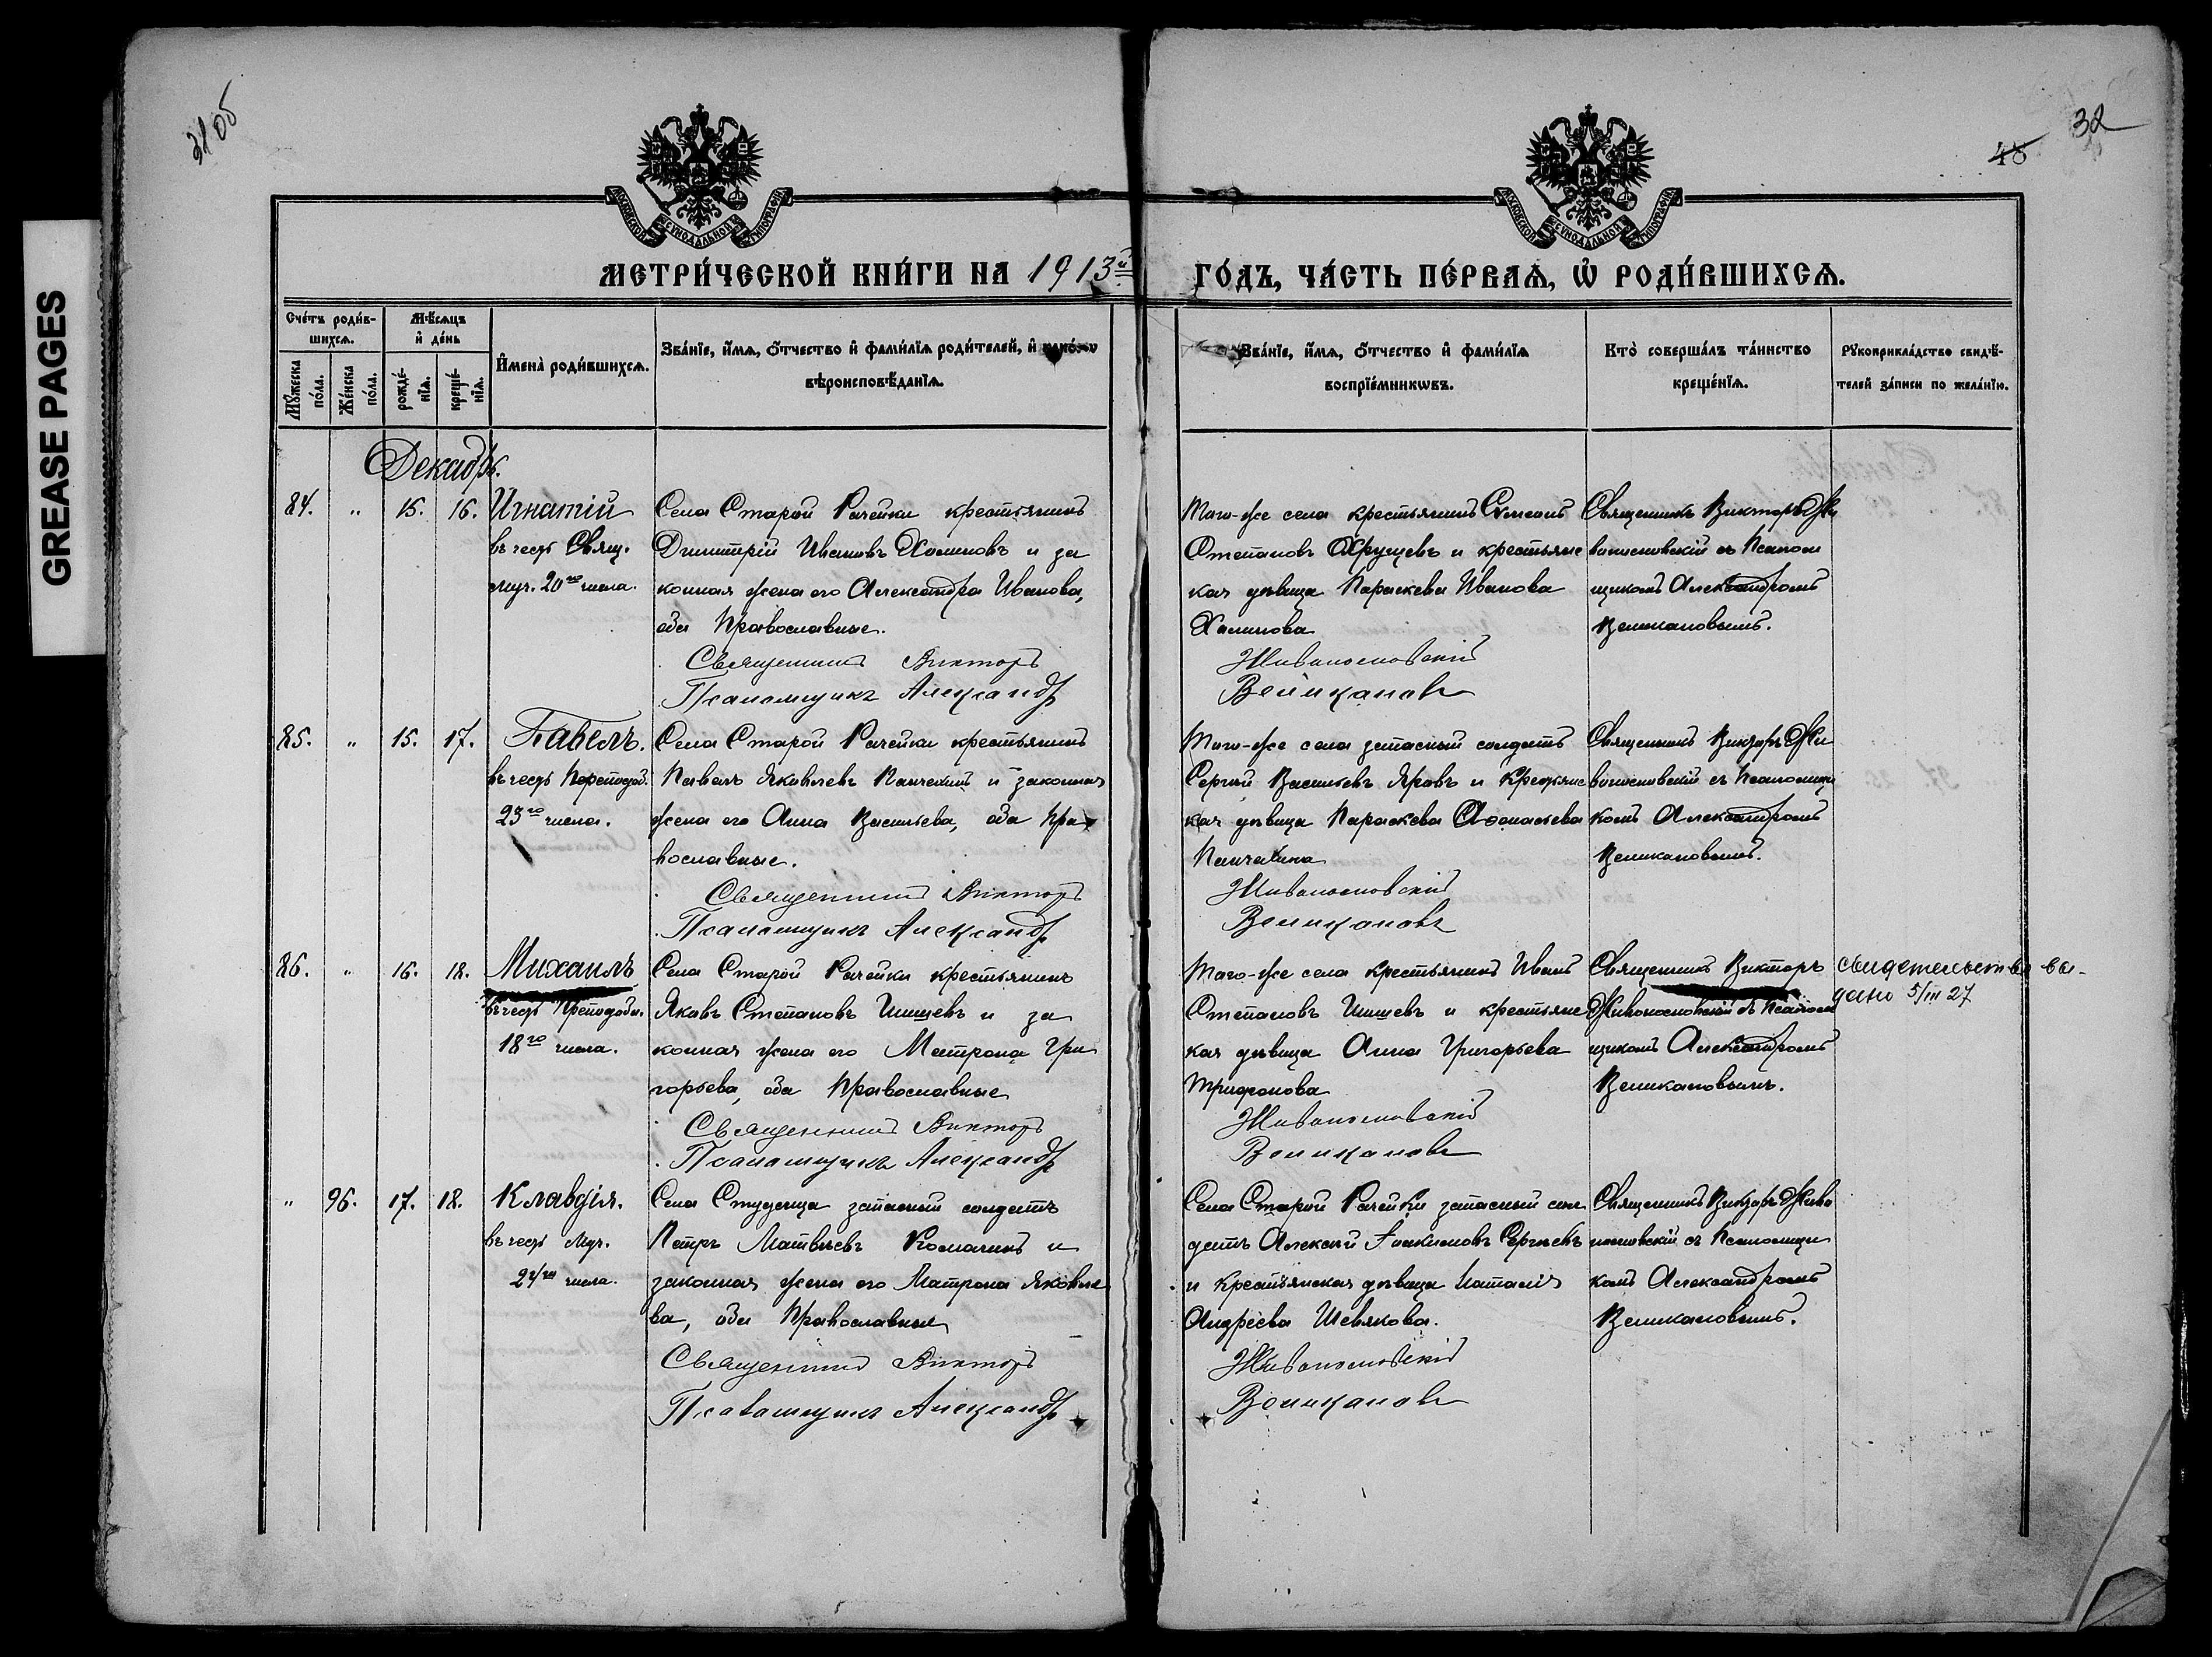 GREASE PAGES
31 об
32
48
МОСКОВСКОЙ СѴНОДАЛЬНОЙ ТИПОГРАФІИ
МОСКОВСКОЙ СѴНОДАЛЬНОЙ ТИПОГРАФІИ
МЕТРИ́ЧЕСКОЙ КНИ́ГИ НА 1913й
ГО́ДЪ, ЧА́СТЬ ПЕ́РВАѦ, Ѡ҆ РОДИ́ВШИХСѦ.
Сче́тъ роди́в-
шихсѧ.
Мѣ́сѧцъ
и҆ де́нь
Мꙋ́жеска
по́ла.
Же́нска
по́ла.
рожде́-
нїѧ.
креще́-
нїѧ.
И҆мена̀ роди́вшихсѧ.
Зва́нїе, и҆́мѧ, ѻ҆́тчество и҆ фами́лїѧ роди́телей, и҆
вѣроисповѣ́данїѧ.
Зва́нїе, и҆́мѧ, ѻ҆́тчество и҆ фами́лїѧ
воспрїе́мникѡвъ.
Кто̀ соверша́лъ та́инство
креще́нїѧ.
Рꙋкоприкла́дство свидѣ́-
телей за́писи по жела́нїю.
Декабрь.
84. " 15. 16. Игнатій
въ честь Свящ.
муч. 20го числа.
Села Старой Рачейки крестьянинъ
Димитрій Ивановъ Халиновъ и за
конная жена его Александра Иванова,
оба Православные.
Священникъ Викторъ
Псаломщикъ Александръ
Того-же села крестьянинъ Симеонъ
Степановъ Хрущевъ и крестьянс
кая дѣвица Параскева Иванова
Халинова
Живоносновскій
Великановъ
Священникъ Викторъ Жи
воносновскій съ Псалом
щикомъ Александромъ
Великановымъ.
85. " 15. 17. Павелъ.
въ честь Преподоб.
23го числа.
Села Старой Рачейки крестьянинъ
Павелъ Яковлевъ Панчехинъ и законная
жена его Анна Васильева, оба Пра
вославные.
Священникъ Викторъ
Псаломщикъ Александръ
Того-же села запасный солдатъ
Сергѣй Васильевъ и Крестьянс
кая дѣвица Параскева Афанасьева
Живоносновскій
Великановъ
Священникъ Викторъ Жи
воносновскій съ Псаломщи
комъ Александромъ
Великановымъ.
86. " 16. 18. Михаилъ
въ честь Преподобн.
18го числа.
Села Старой Рачейки крестьянинъ
Яковъ Степановъ Шишевъ и за
конная жена его Матрона Гри
горьева, оба Православные
Священникъ Викторъ
Псаломщикъ Александръ
Того-же села крестьянинъ Иванъ
Степановъ Шишевъ и крестьянс
кая дѣвица Анна Григорьева
Трифонова
Живоносновскій
Великановъ
Священникъ Викторъ
Живоносновскій съ Псалом
щикомъ Александромъ
Великановымъ.
свидетельство вы-
дано 5/III 27
" 96. 17. 18. Клавдія.
въ честь Муч.
24го числа.
Села Студенца запасный солдатъ
Петръ Матвѣевъ и
законная жена его Матрона Яковле
ва, оба Православные
Священникъ Викторъ
Псаломщикъ Александръ
Села Старой Рачейки запасный сол
датъ Алексѣй Іоакимовъ Сергѣевъ
и Крестьянская дѣвица Наталія
Андреева Шевякова.
Живоносновскій
Великановъ
Священникъ Викторъ Живо
носновскій съ Псаломщи
комъ Александромъ
Великановымъ.